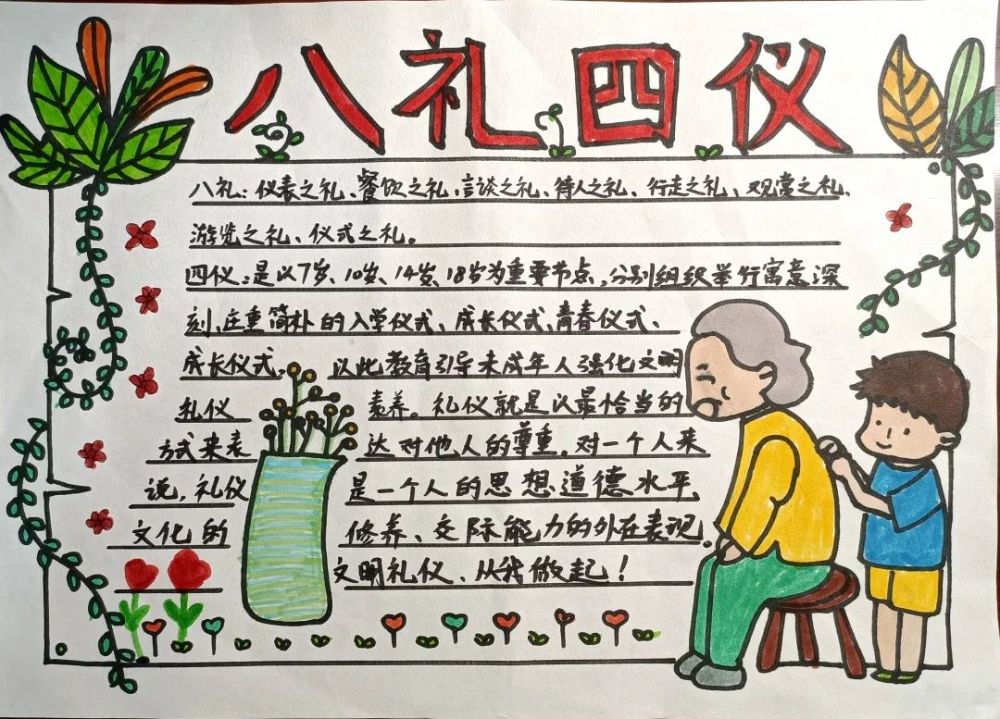 八礼四仪
八礼：仪表之礼、餐饮之礼、言谈之礼、待人之礼、行走之礼、观赏之礼、
游览之礼、仪式之礼。
四仪：是以7岁、10岁、14岁、18岁为重要节点，分别组织举行寓意深
刻、庄重简朴的入学仪式、成长仪式、青春仪式、
成长仪式， 以此教育引导未成年人强化文明
礼仪 素养。礼仪就是以最恰当的
方式来表 达对他人的尊重。对一个人来
说，礼仪 是一个人的思想道德水平、
文化的 修养、交际能力的外在表现。
文明礼仪、从我做起！